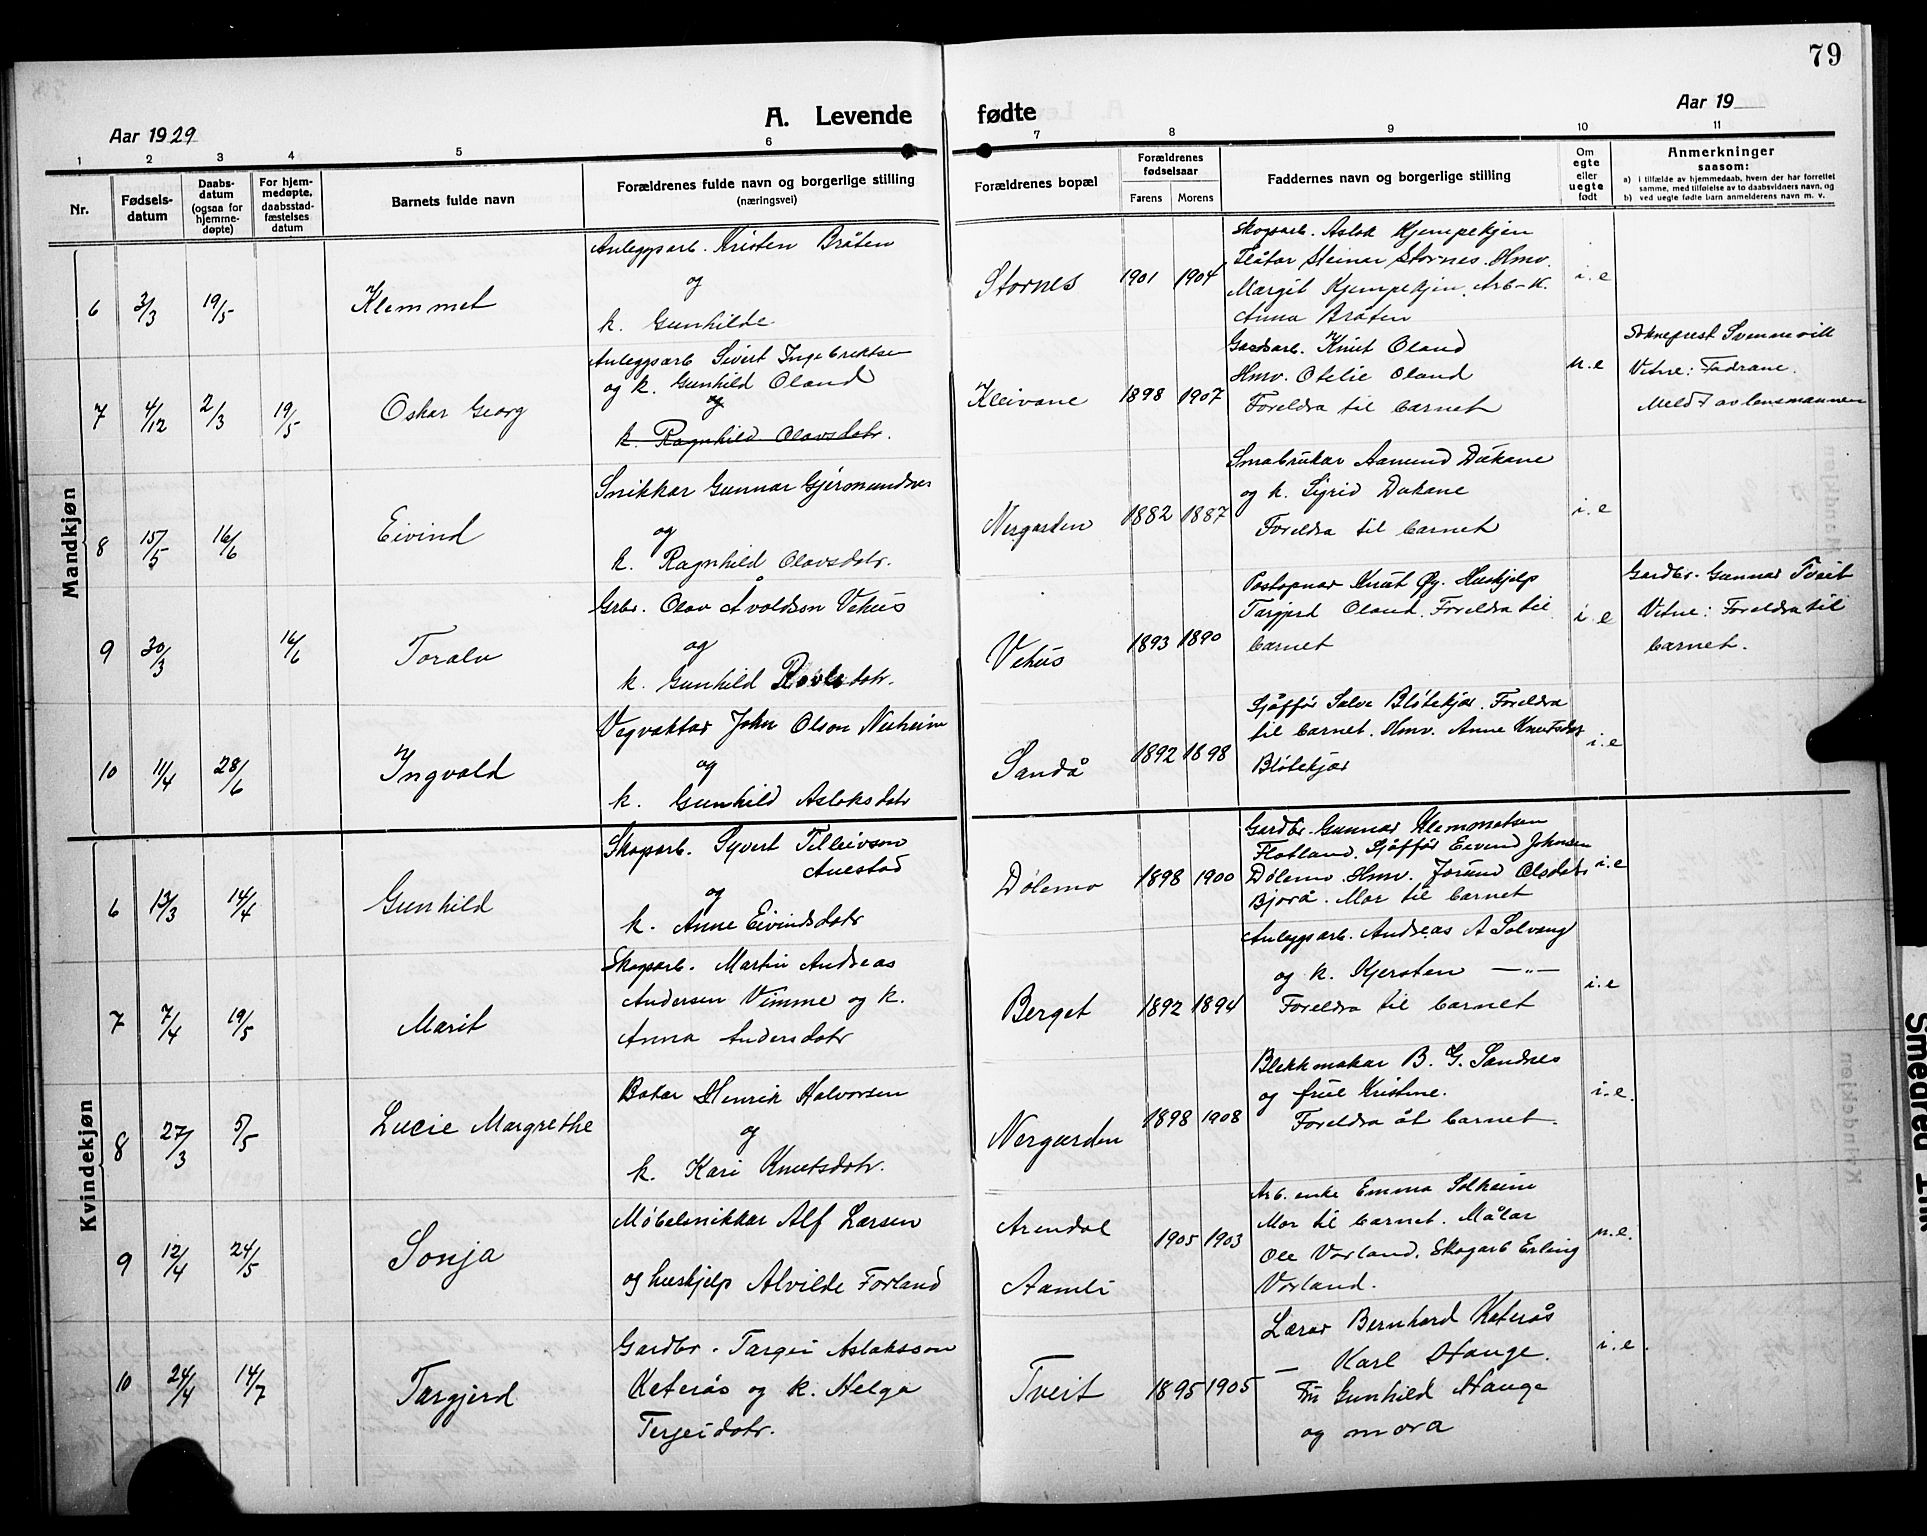 79
Aar 1929
A. Levende
fødte
Aar 19
1 2 3 4 5 6 7 8 9 10 11
Nr.
Fødsels-
datum
Daabs-
datum
(ogsaa for
hjemme-
døpte)
For hjem-
medøpte,
daabsstad-
fæstelses
datum
Barnets fulde navn
Forældrenes fulde navn og borgerlige stilling
(næringsvei)
Forældrenes bopæl
Forældrenes
fødselsaar
Farens Morens
Faddernes navn og borgerlige stilling
Om
egte
eller
uegte
født
Anmerkninger
saasom:
a) i tilfælde av hjemmedaab, hvem der har forrettet
samme, med tilføielse av to daabsvidners navn, og
b) ved uegte fødte barn anmelderens navn m. v.
Mandkjøn
6 3/3 19/5 Klemmet
Anleggsarb. Kristen Bråten
og
k. Gunhilde
Stornes 1901 1904
Skogsarb. Aslak Kjempekjen
Fløtar Steinar Stornes. Hmv.
Margit Kjempekjen. Arb-k.
Anna Bråten
i.e
7 4/12 2/3 19/5 Oskar Georg
Anleggsarb Sivert Ingebriktsen
og k. Gunhild Oland
og
k. Ragnhild Olavsdotr.
Kleivane 1898 1907
Gardsarb. Knut Oland
Hmv. Otelie Oland
Foreldra til barnet
u.e
Sokneprest Svennevill
Vitne: Fadrane.
Meldt av lensmannen
8 15/5 16/6 Eivind
Snikkar Gunnar Gjermundsen
og
k. Ragnhild Olavsdotr.
Nergarden 1882 1887
Småbrukar Aamund Dåkane
og k. Sigrid Dåkane
Foreldra til barnet
i.e
9 30/3 16/6 Toralv
Grbr. Olav Åvoldson Vehus
og
k. Gunhild Rolvsdotr.
Vehus 1893 1890
Postopnar Knut Øy. Huskjelp
Targjerd Oland. Foreldra til
barnet
i e
Gardbr. Gunnar Tveit
Vitne: Foreldra til
barnet.
10 11/4 28/6 Ingvald
Vegvaktar John Olson Neiheim
og
k. Gunhild Aslaksdotr
Sandå 1892 1898
Sjåffør Salve Bløtekjær. Foreldra
til barnet. Hmv. Anne Knutsdotr
Bløtekjær
i.e
Kvindekjøn
6 13/3 14/4 Gunhild
Skogsarb. Syvert Telleivson
Auestad
og
k. Anne Eivindsdotr
Dølemo 1898 1900
Gardbr. Gunnar Klemmetsen
Flatland. Sjåffør Eivind Johnsen
Dølemo. Hmv. Jorund Olsdotr
Bjorå. Mor til barnet
i.e
7 7/4 19/5 Marit
Skogsarb. Martin Andreas
Andersen Vimme og k.
Anna Andersdotr
Berget 1892 1894
Anleggsarb. Andreas A Solvang
og k. Kjersten —"—
Foreldra til barnet
i.e
8 27/3 5/5 Lucie Margrethe
Bakar Henrik Halvorsen
og
k. Kari Knutsdotr.
Nergarden 1898 1908
Blekkmakar B. G. Sandnes
og frue Kristine.
Foreldra åt barnet.
i.e.
9 12/4 24/5 Sonja
Møbelsnikkar Alf Larsen
og huskjelp Alvilde Forland
Arendal
Aamli
1905 1903
Arb. enke Emma Solheim
Mor til barnet. Målar
Ole Vorland. Skogarb Erling
Vorland.
u.e.
10 24/4 14/7 Targjerd
Gardbr. Targei Aslaksson
Keterås og k. Helga
Terjeidotr.
Tveit 1895 1905
Lærar Bernhard Keterås
— Karl Hauge.
Fru Gunhild Hauge
og mora
i.e.